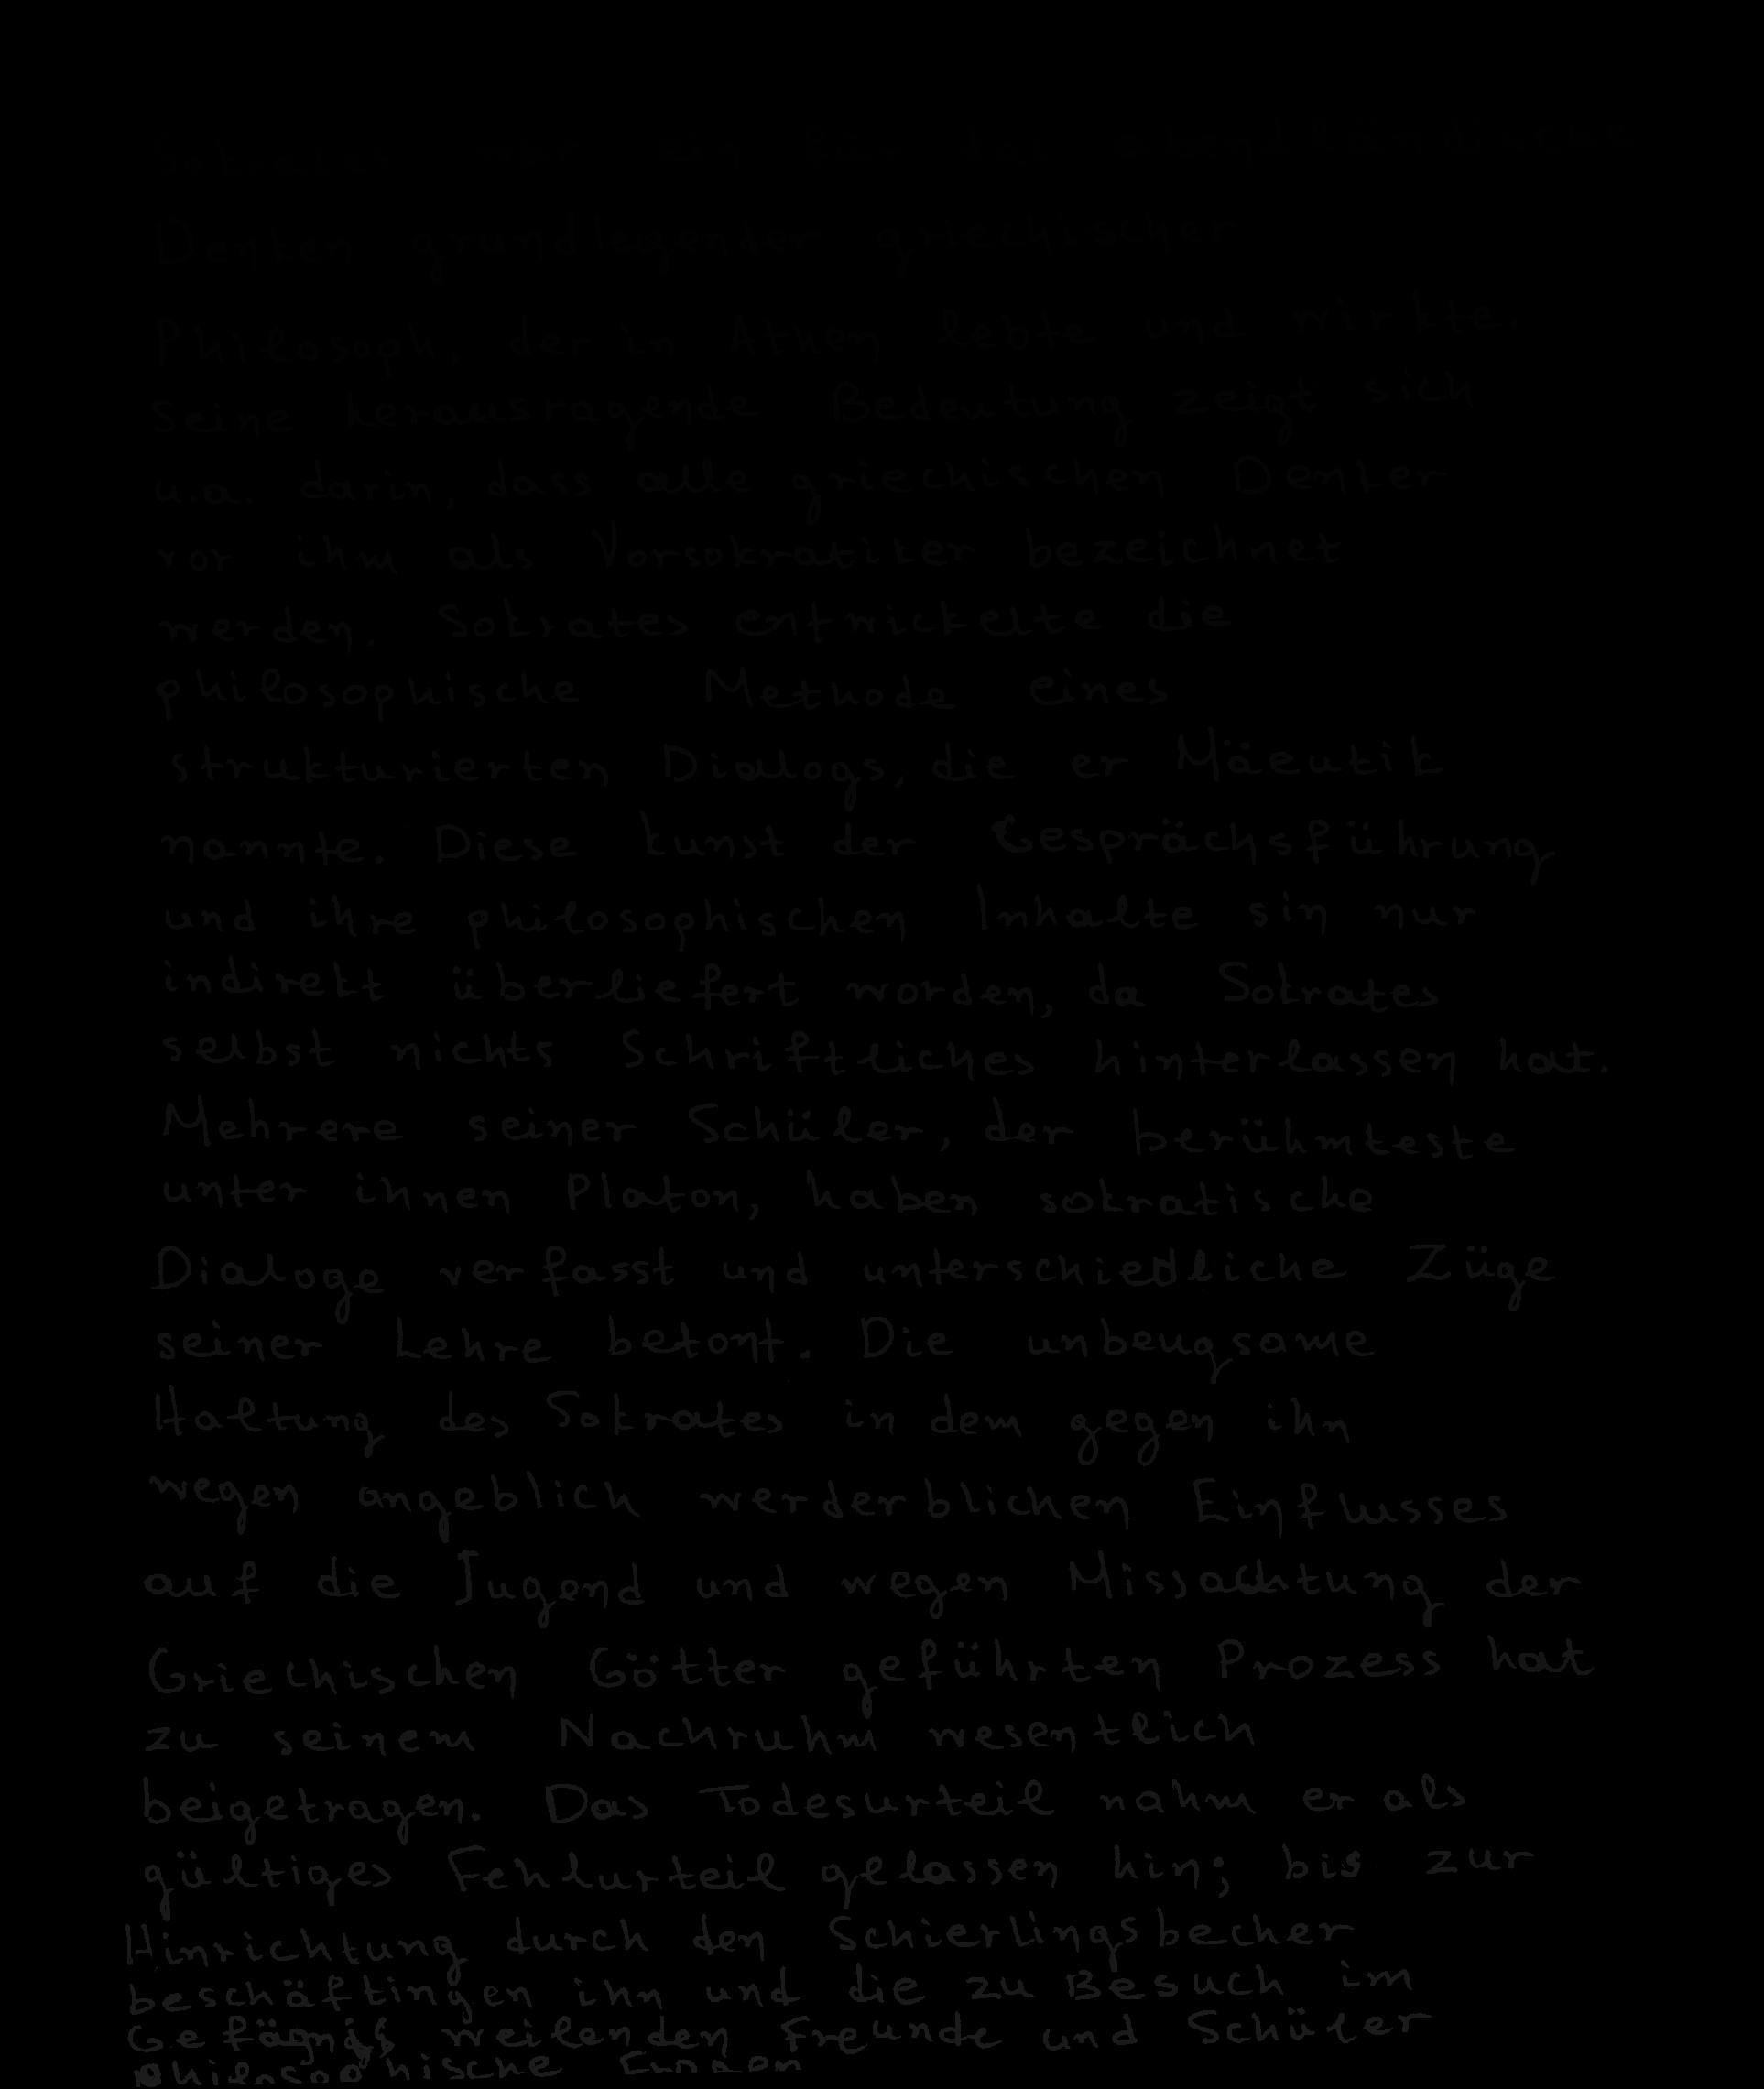 Denken grundlegender griechischer
Philosoph, der in Athen lebte und wirkte.
Seine herausragende Bedeutung zeigt sich
u.a. darin, dass alle griechischen Denker
vor ihm als Vorsokratiker bezeichnet
werden. Sokrates entwickelte die
philosophische Methode eines
strukturierten Dialogs, die er Mäeutik
nannte. Diese kunst der Gesprächsführung
und ihre philosophischen Inhalte sin nur
indirekt überliefert worden, da Sokrates
selbst nichts Schriftliches hinterlassen hat.
Mehrere seiner Schüler, der berühmteste
unter ihnen Platon, haben sokratische
Dialoge verfasst und unterschiedliche Züge
seiner Lehre betont. Die unbeugsame
Haltung des Sokrates in dem gegen ihn
wegen angeblich werderblichen Einflusses
auf die Jugend und wegen Missachtung der
Griechischen Götter geführten Prozess hat
zu seinem Nachruhm wesentlich
beigetragen. Das Todesurteil nahm er als
gültiges Fehlurteil gelassen hin; bis zur
Hinrichtung durch den Schierlingsbecher
beschäftingen ihn und die zu Besuch im
Gefägnis weilenden Freunde und Schüler
philosophische Fragen